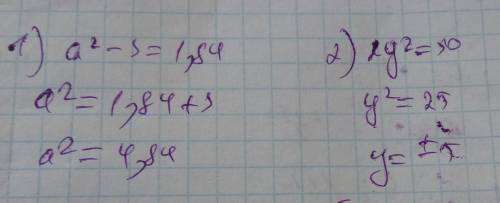 1) a² − 3 = 1,84
a² = 1,84 + 3
a² = 4,84
2) 2y² = 50
y² = 25
y = ±5